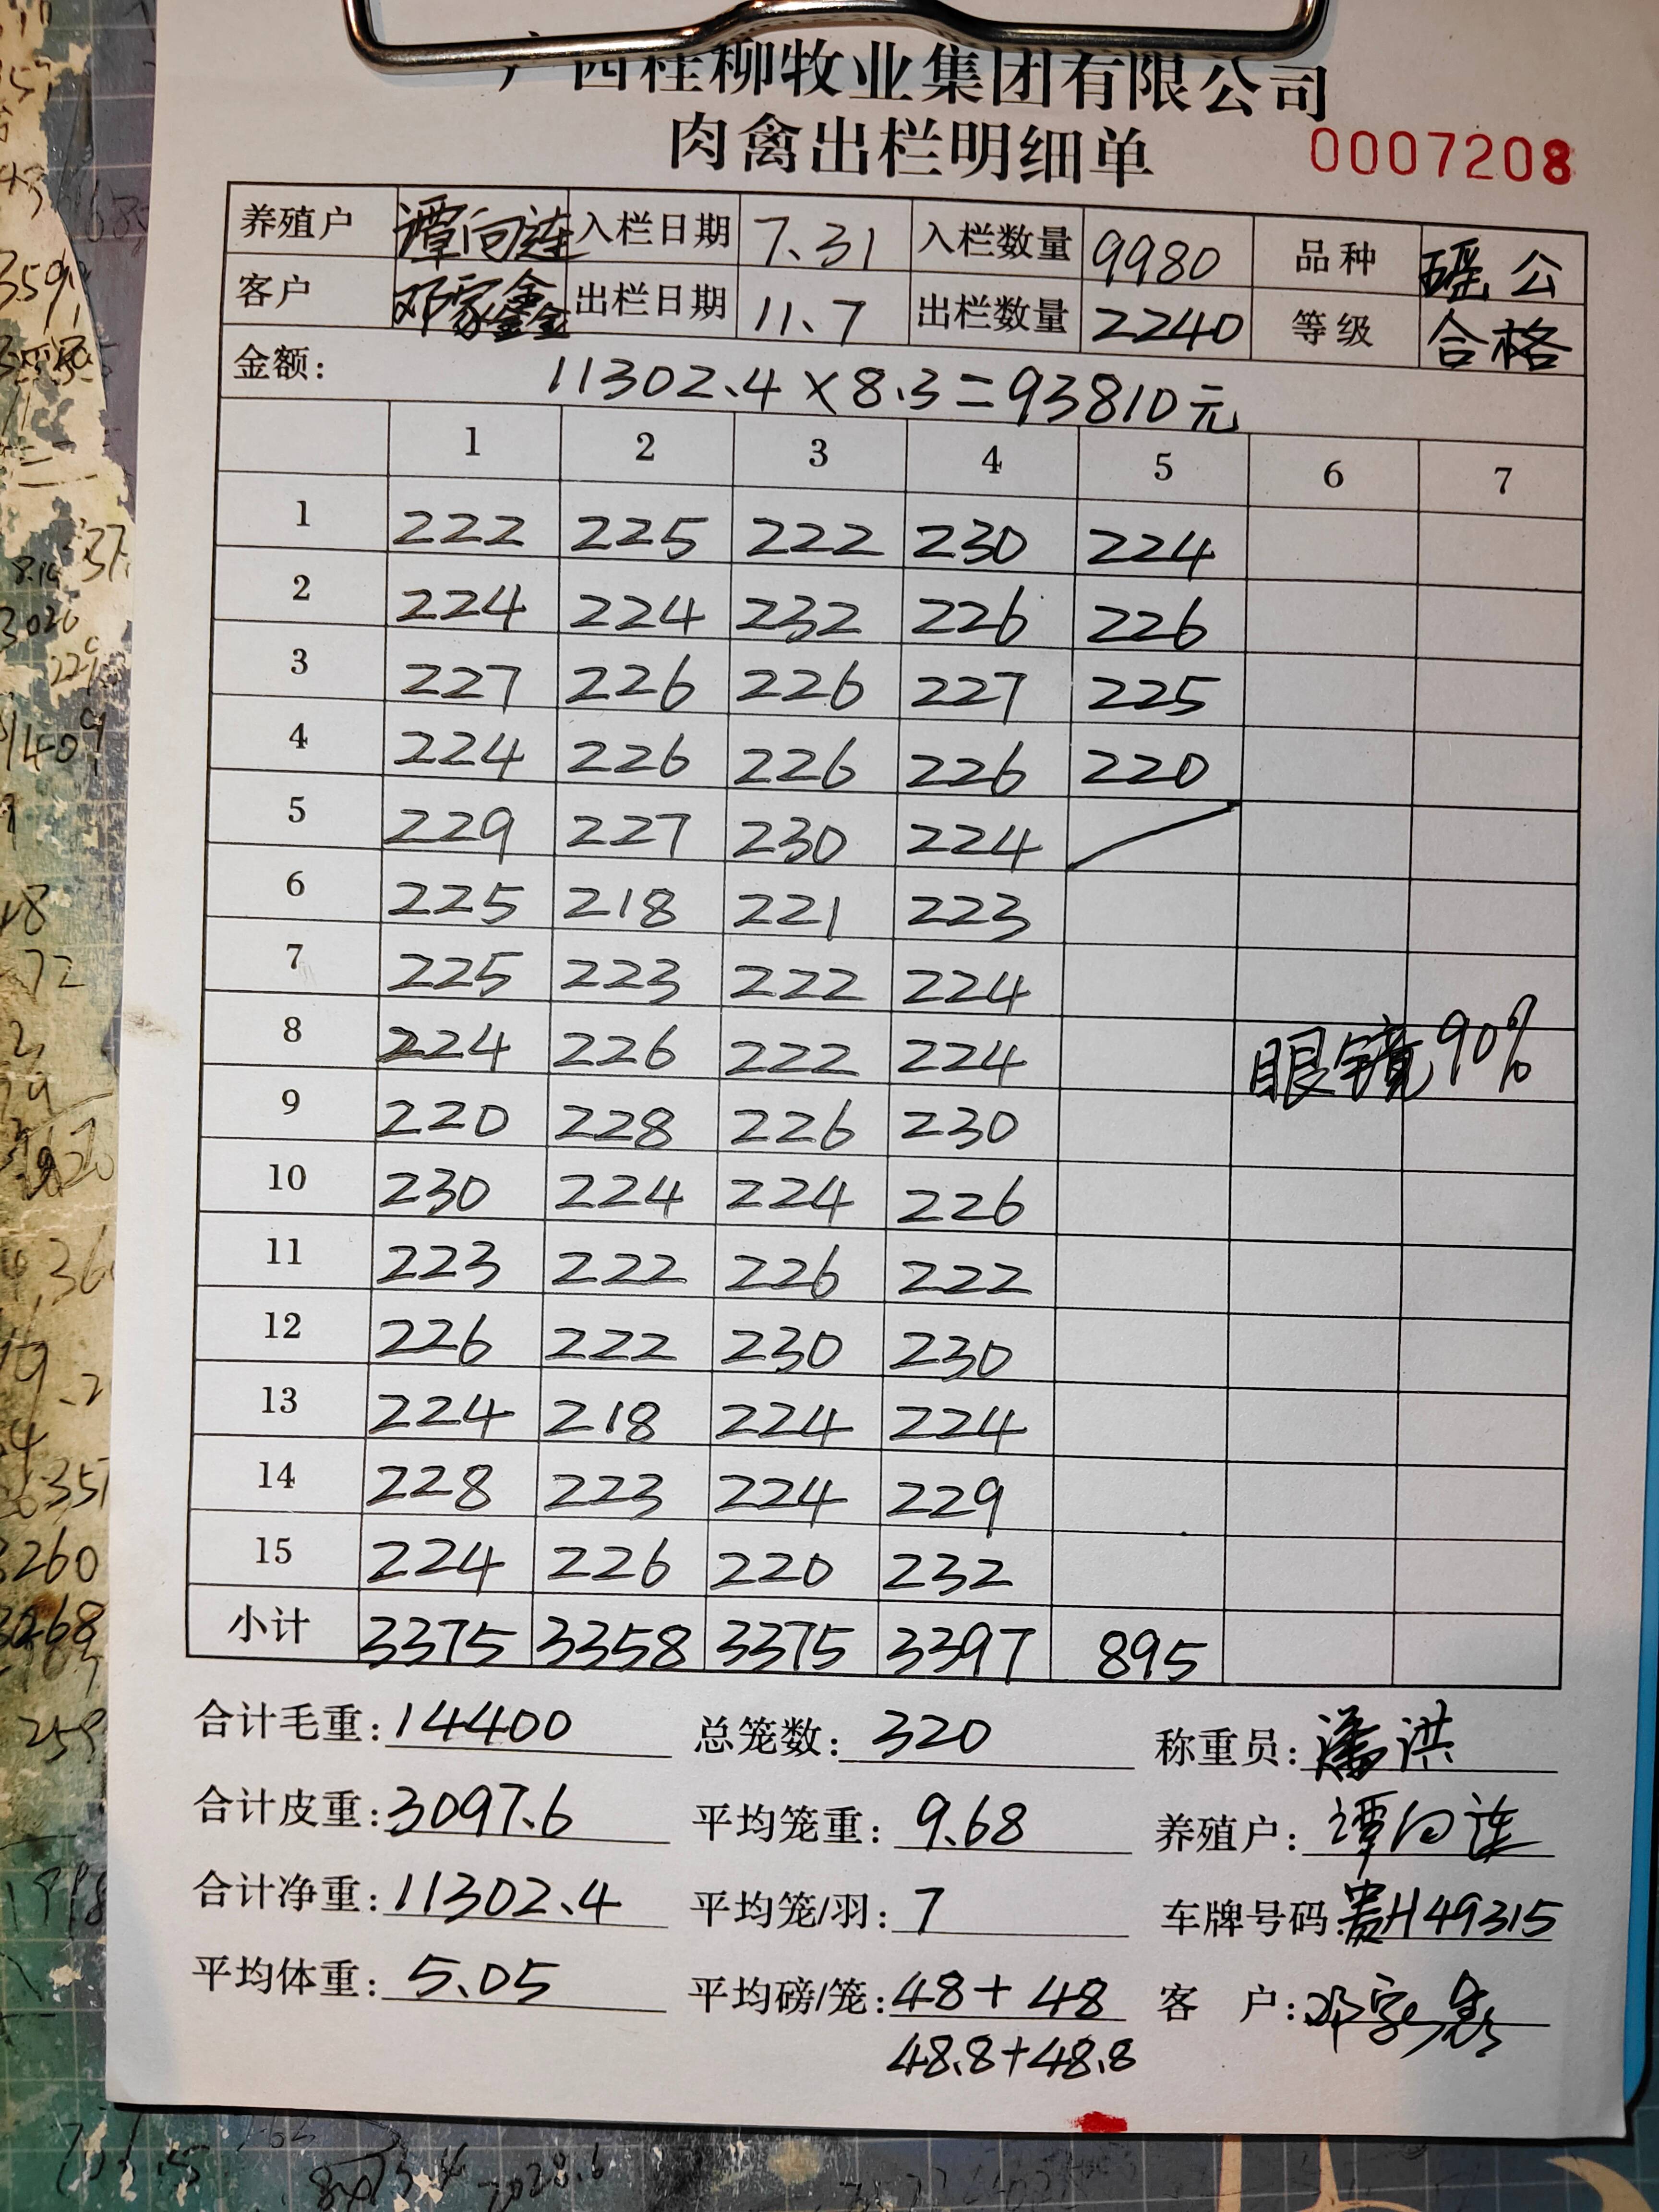 广西桂柳牧业集团有限公司
肉禽出栏明细单 0007208
养殖户 谭向莲 入栏日期 7.31 入栏数量 9980 品种 瑶公
客户 邓家鑫 出栏日期 11.7 出栏数量 2240 等级 合格
金额: 11302.4×8.3=93810元
1 2 3 4 5 6 7
1 222 225 222 230 224
2 224 224 232 226 226
3 227 226 226 227 225
4 224 226 226 226 220
5 229 227 230 224
6 225 218 221 223
7 225 223 222 224
8 224 226 222 224 眼镜90%
9 220 228 226 230
10 230 224 224 226
11 223 222 226 222
12 226 222 230 230
13 224 218 224 224
14 228 223 224 229
15 224 226 220 232
小计 3375 3358 3375 3397 895
合计毛重:14400 总笼数:320 称重员:潘洪
合计皮重:3097.6 平均笼重:9.68 养殖户:谭向莲
合计净重:11302.4 平均笼/羽:7 车牌号码:贵H49315
平均体重:5.05 平均磅/笼:48+48 客户:邓家鑫
48.8+48.8